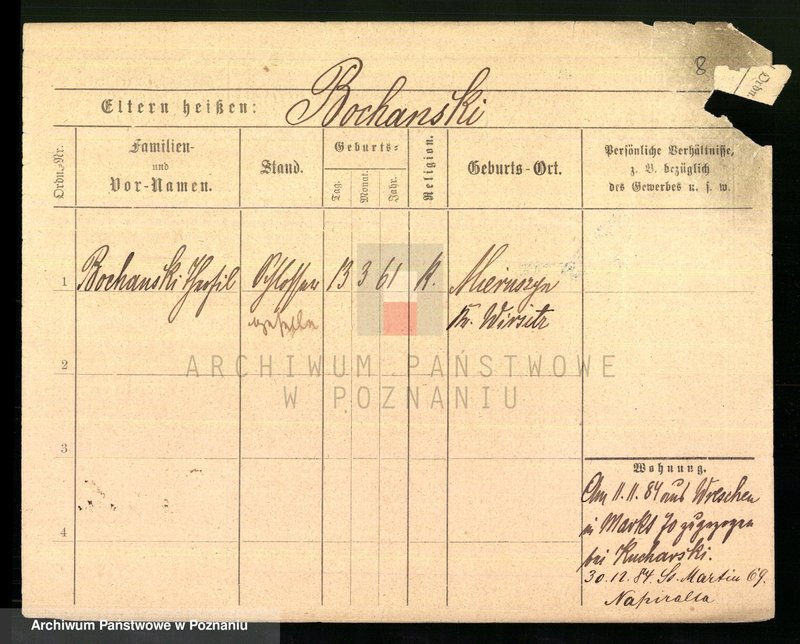 8
Ordn.
Eltern heißen: Bochanski
Ordn.-Nr.
Familien- und Vor-Namen.
Stand.
Geburts-
Tag.
Monat.
Jahr.
Religion.
Geburts-Ort.
Persönliche Verhältnisse,
z. B. bezüglich
des Gewerbes u. s. w.
1 Bochanski Theofil Schlosser 13 3 61 K.
geselle
Kr. Wirsitz
ARCHIWUM PAŃSTWOWE
W POZNANIU
2
3
4
Wohnung.
Am 11.11.84 aus Wreschen
in Markt 70 zugezogen
bei Kucharski.
30.12.84 St. Martin 69.
Napiralla
Archiwum Państwowe w Poznaniu